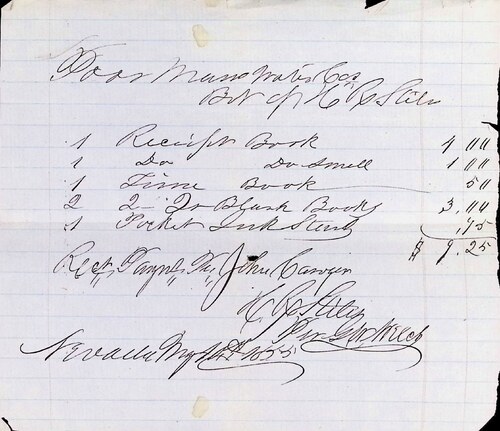 Poor Mans Water Co
Bot of H R Stiles
1 Receipt Book 4 00
1 Do Do Small 1 00
1 Time Book 50
2 2 Qr Blank Books 3.00
1 Pocket Ink Stand .75
$ 9.25
Rect Paymt Pr John
H R Stiles
Per G W Welch
Nevada 1855